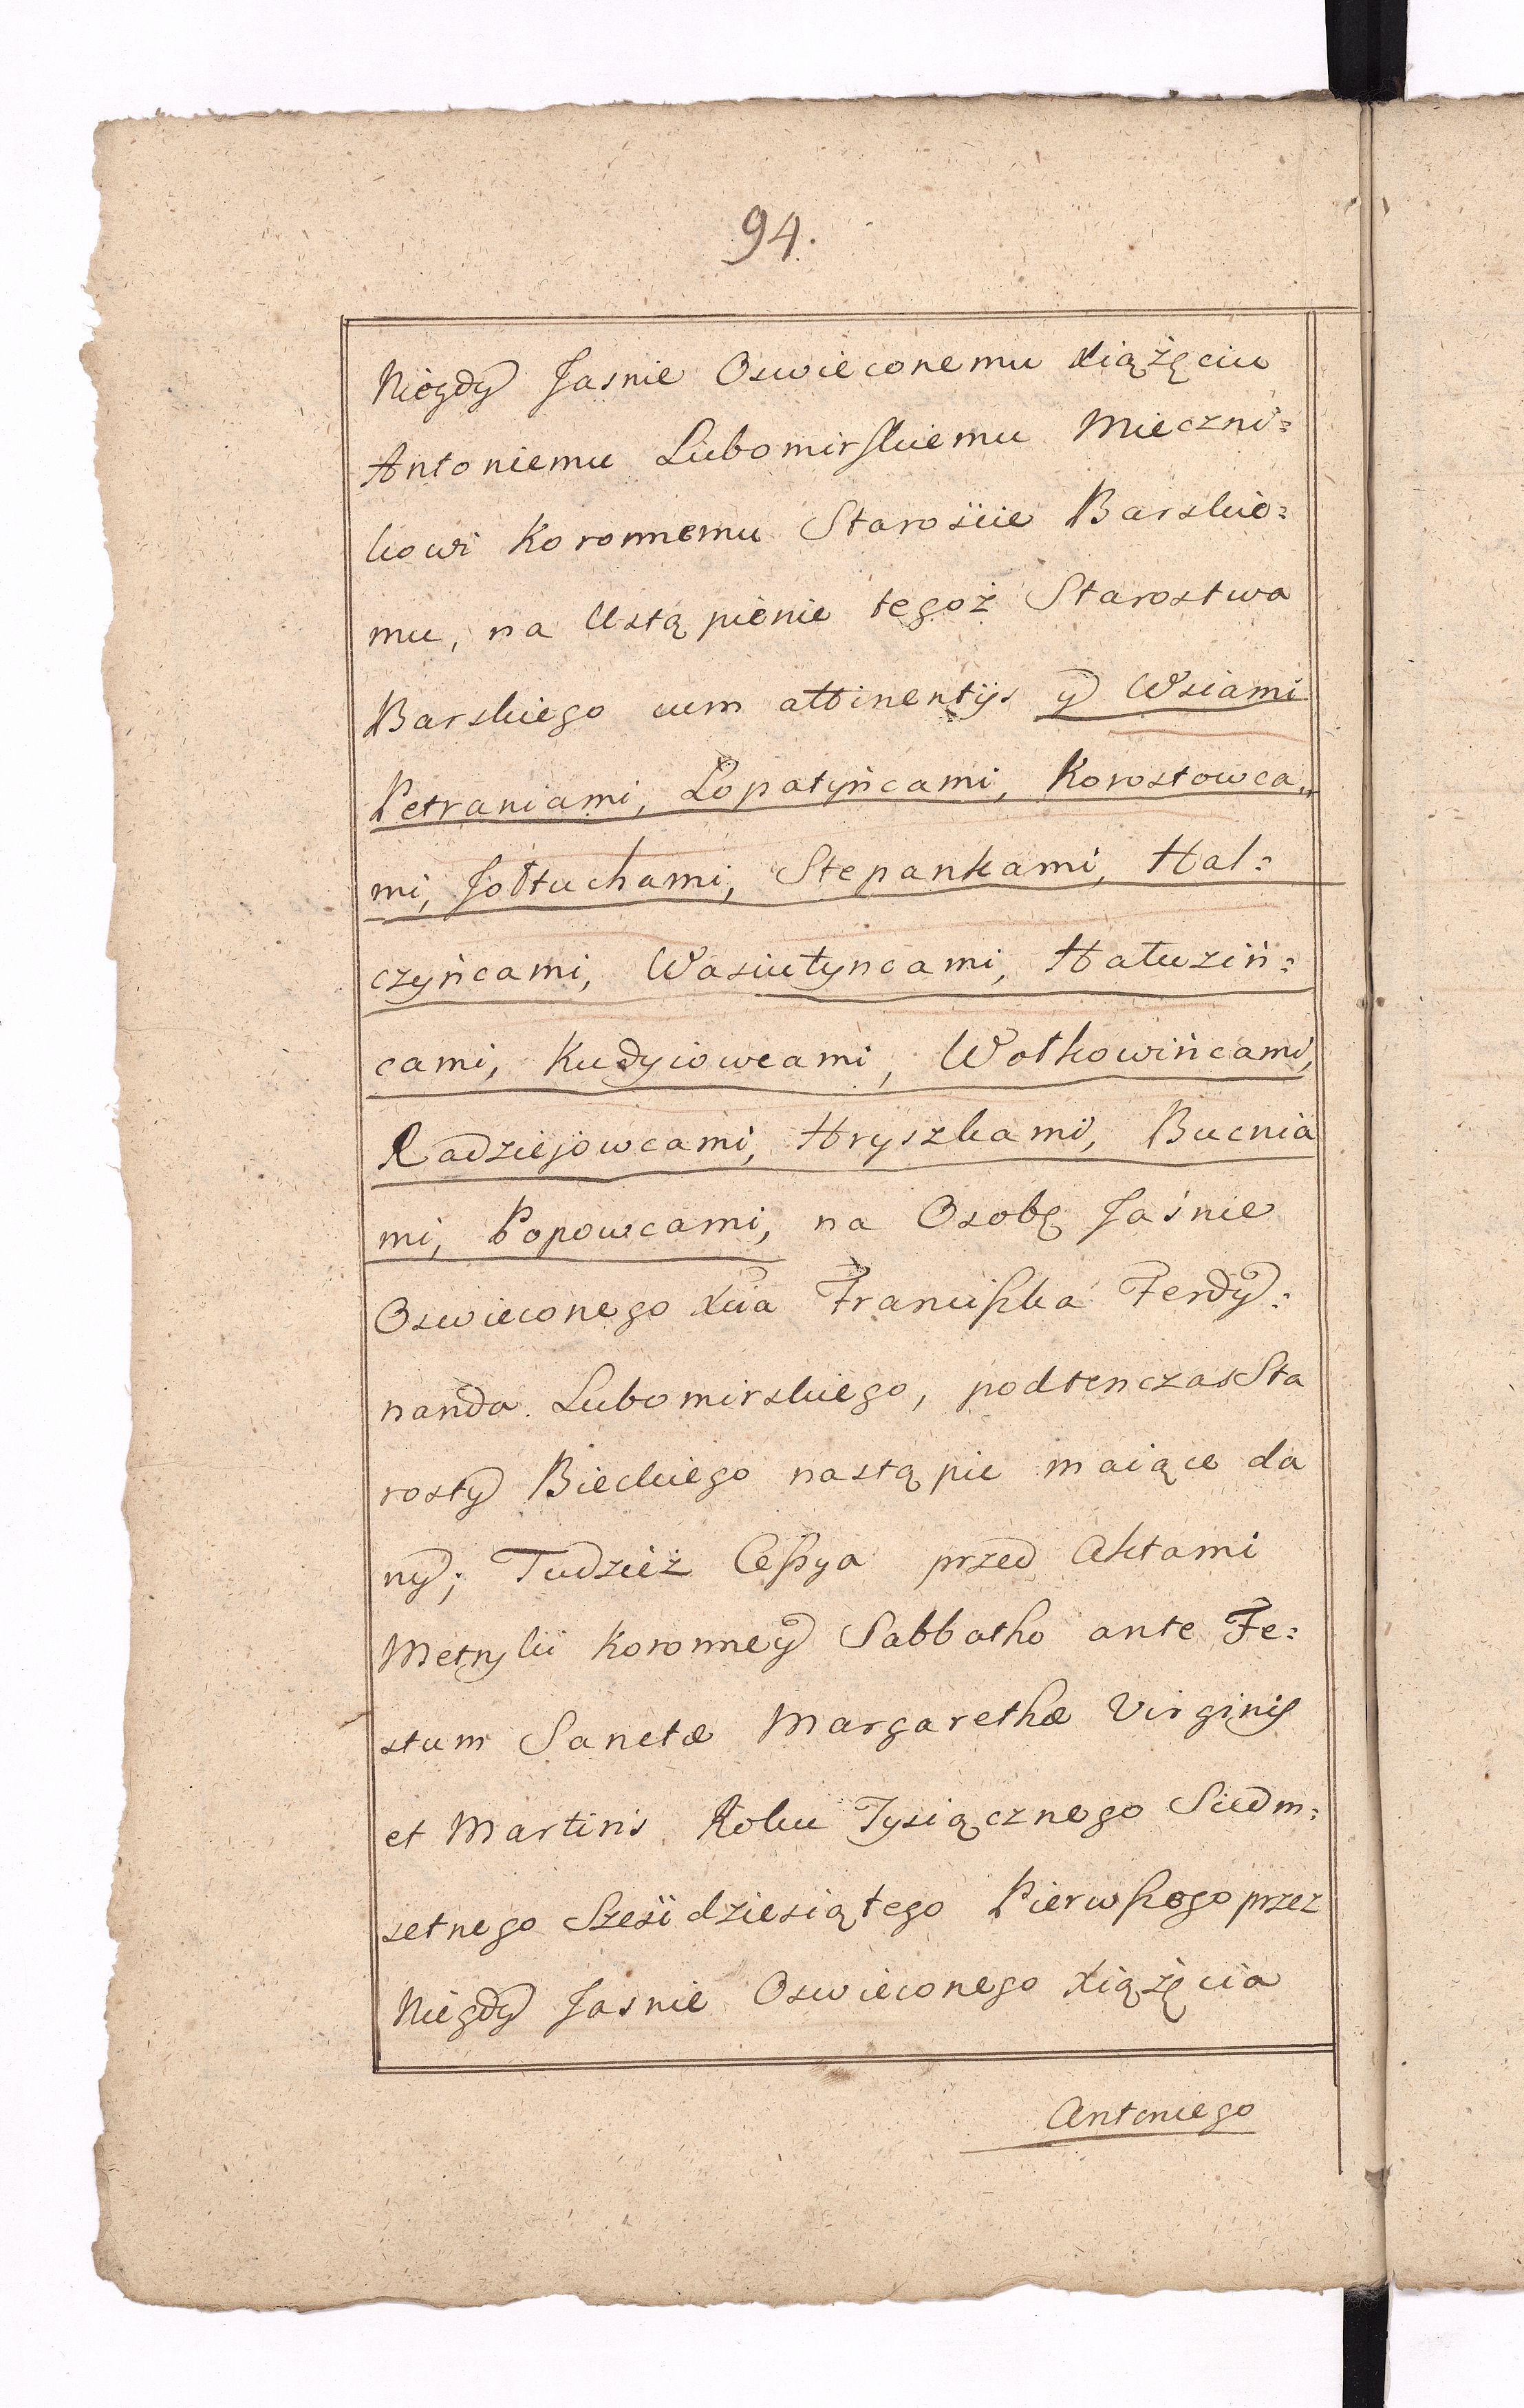 94.
Niegdy Jasnie Oswieconemu Xiążęciu
Antoniemu Lubomirskiemu Mieczni=
kowi Koronnemu Starośćie Barskie=
mu, na Ustąpienie tegoż Starostwa
Barskiego cum attinentijs y Wsiami
Petraniami, Łopatyńcami, Korostowca„
mi, Jołtuchami, Stepankami, Hal=
czyńcami, Wasiutyncami, Hałuziń=
cami, Kudyiowcami, Wołkowińcami,
Radziejowcami, Hryszkami, Bucnia
mi, Popowcami, na Osobę Jaśnie
Oswieconego Xcia Franciszka Ferdy=
nanda Lubomirskiego, podtenczas Sta
rosty Bieckiego nastąpić maiące da
ny; Tudzież Cessya przed Aktami
Metryki Koronney Sabbatho ante Fe=
stum Sanctæ Margarethæ Virginis
et Martiris Roku Tysiącznego Siedm=
setnego Sześćdziesiątego Pierwszego przez
Niegdy Jasnie Oswieconego Xiążęcia
Antoniego